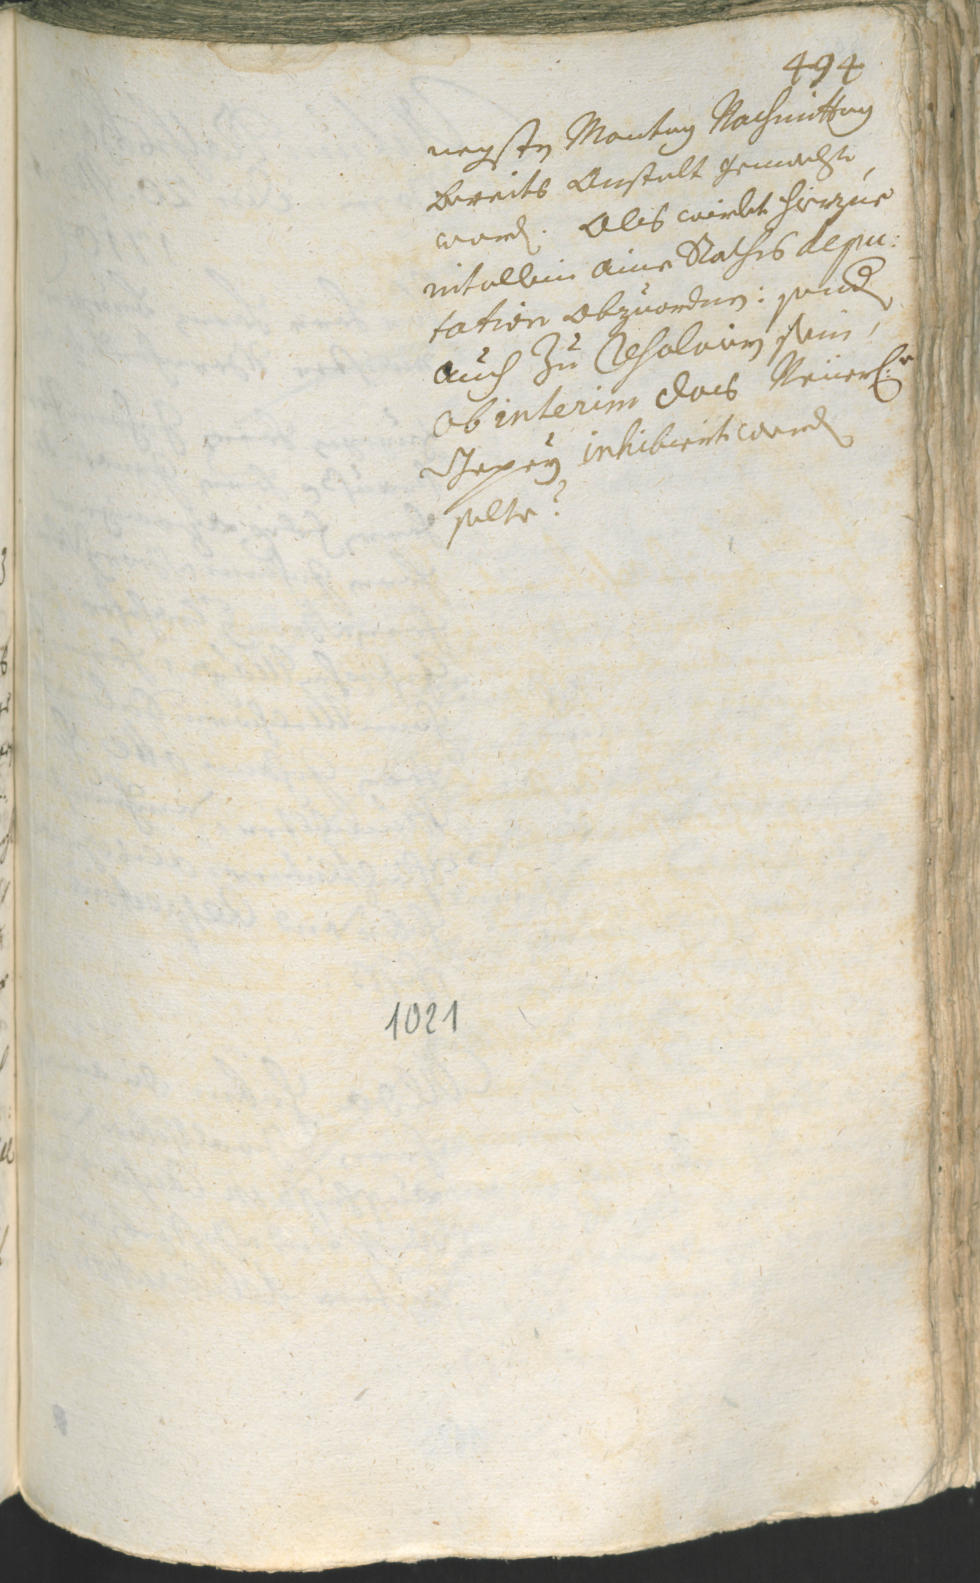 494
negsten Montag Nachmittag
bereits Anstalt gemacht
word. Als wirdet hierzue
nit allein aine Raths depu:
tation abzuordnen: sond
auch zu resolvirn sein,
ob interim das
inhibiert werd
solte?
1021